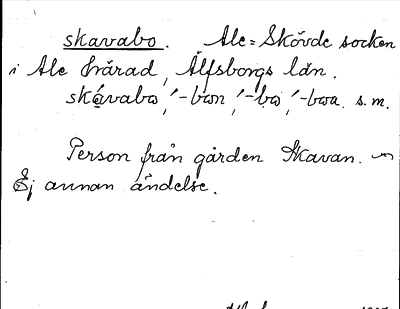 skavabo. Ale=Skövde socken
i Ale härad, Älfsborgs län.
skávabo, ´-bon, ´-bo, ´-boa. s.m.
Person från gården Skavan.
Ej annan ändelse.